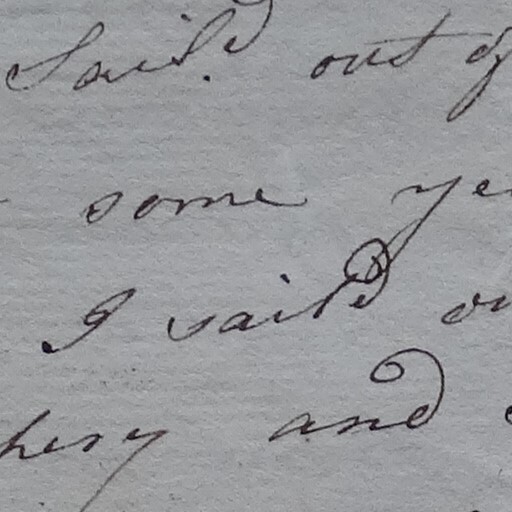 Sail'd out of
some ye
I sail'd ou
hery and